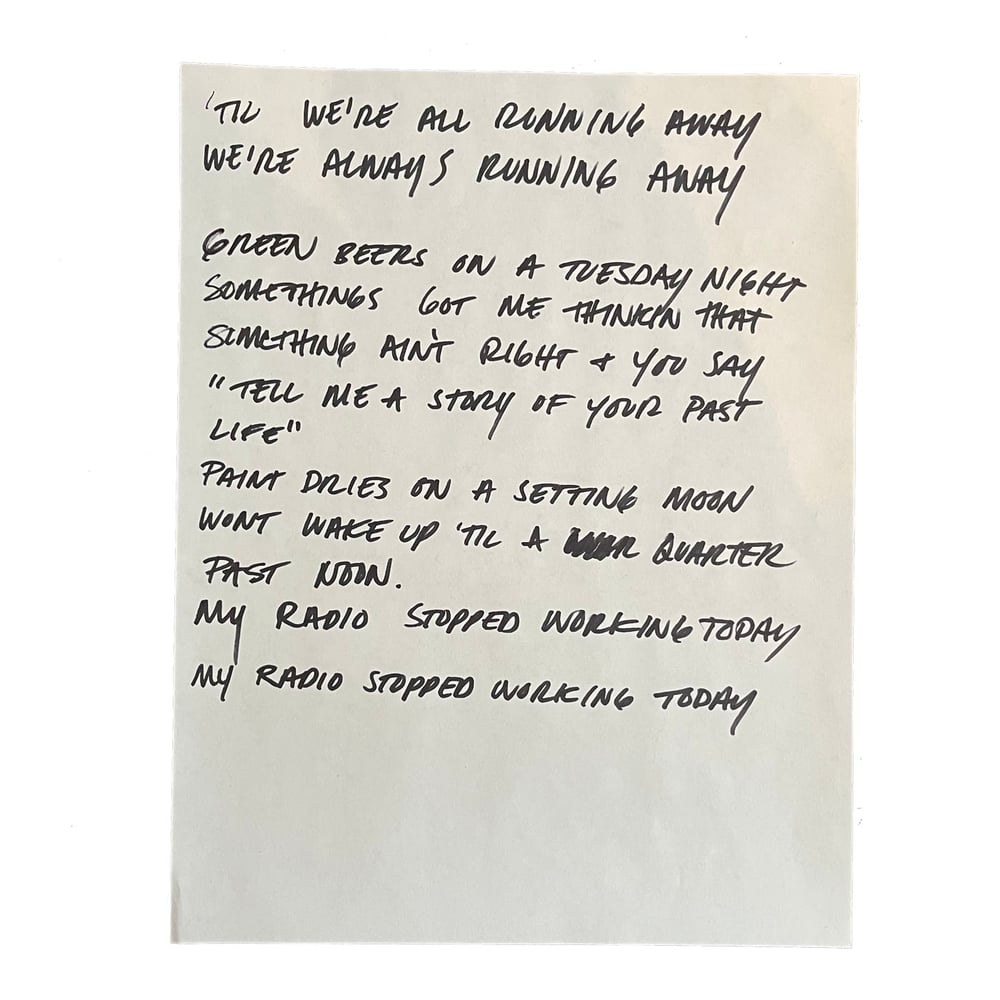 'TIL WE'RE ALL RUNNING AWAY
WE'RE ALWAYS RUNNING AWAY
GREEN BEERS ON A TUESDAY NIGHT
SOMETHINGS GOT ME THINKIN THAT
SOMETHING AIN'T RIGHT + YOU SAY
"TELL ME A STORY OF YOUR PAST
LIFE"
PAINT DRIES ON A SETTING MOON
WONT WAKE UP 'TIL A QUARTER
PAST NOON.
MY RADIO STOPPED WORKING TODAY
MY RADIO STOPPED WORKING TODAY